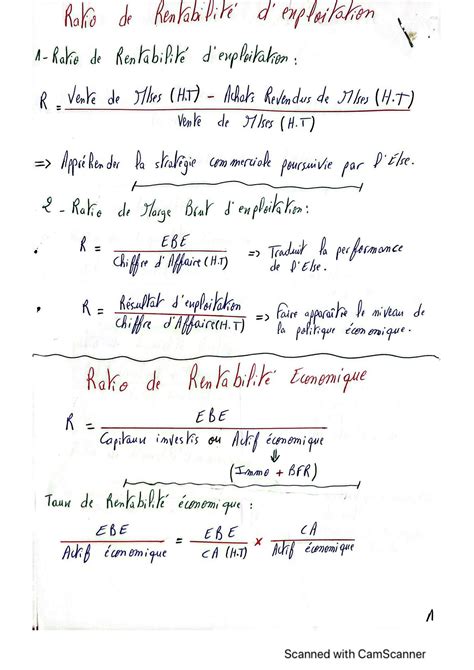 Ratio de Rentabilité d'exploitation
1-Ratio de Rentabilité d'exploitation :
R = Vente de M/ses (H.T) - Achats Revendus de M/ses (H.T)
Vente de M/ses (H.T)
=> Appréhender la stratégie commerciale poursuivie par l'E/se.
2 - Ratio de Marge Brut d'exploitation :
R = EBE
Chiffre d'Affaire (H.T)
=> Traduit la performance
de l'E/se.
R = Résultat d'exploitation
Chiffre d'Affaire (H.T)
=> Faire apparaître le niveau de
la politique économique.
Ratio de Rentabilité Economique
R = EBE
Capitaux investis ou Actif économique
(Immo + BFR)
Taux de Rentabilité économique :
EBE = EBE × CA
Actif économique CA (H.T) Actif économique
1
Scanned with CamScanner